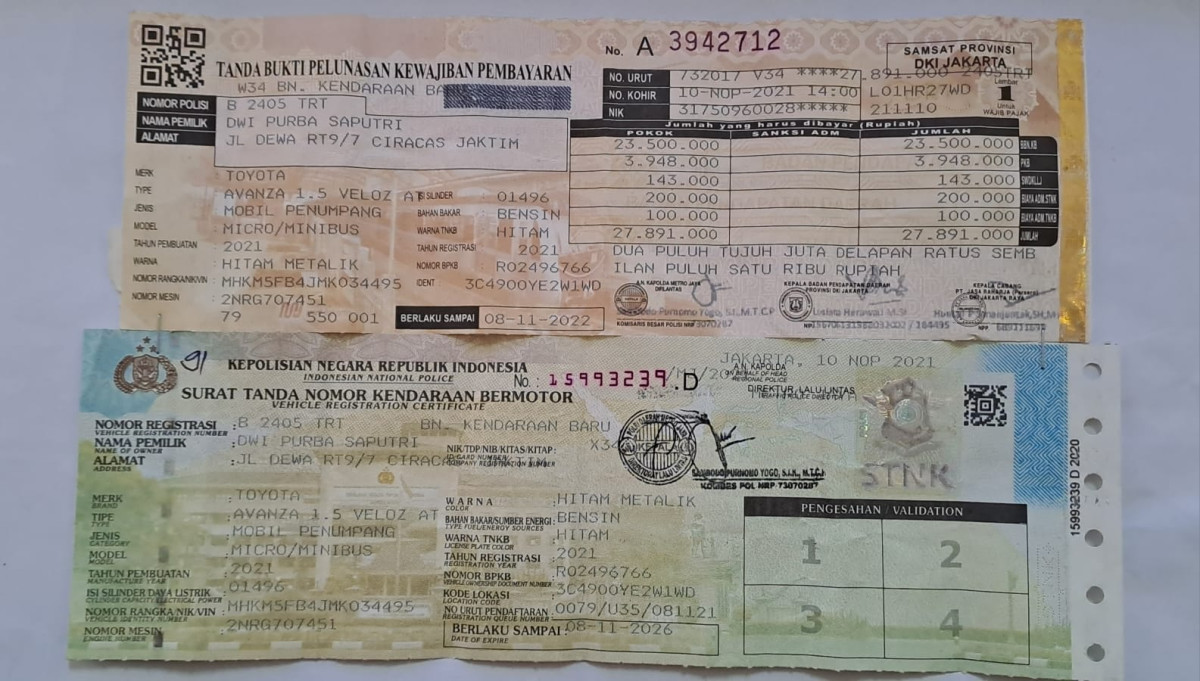 No. A 3942712
SAMSAT PROVINSI
DKI JAKARTA
TANDA BUKTI PELUNASAN KEWAJIBAN PEMBAYARAN
W34 BN. KENDARAAN
NO. URUT 732017 V34 ****27.891.000 2405TRT
Lembar
1
Untuk
WAJIB PAJAK
NO. KOHIR 10-NOP-2021 14:00 L01HR27WD
NIK 31750960028***** 211110
NOMOR POLISI B 2405 TRT
NAMA PEMILIK DWI PURBA SAPUTRI
ALAMAT JL DEWA RT9/7 CIRACAS JAKTIM
Jumlah yang harus dibayar (Rupiah)
POKOK SANKSI ADM JUMLAH
23.500.000 23.500.000 BBN.KB
3.948.000 3.948.000 PKB
143.000 143.000 SWDKLLJ
200.000 200.000 BIAYA ADM.STNK
100.000 100.000 BIAYA ADM.TNKB
27.891.000 27.891.000 JUMLAH
DUA PULUH TUJUH JUTA DELAPAN RATUS SEMB
ILAN PULUH SATU RIBU RUPIAH
MERK : TOYOTA
TYPE AVANZA 1.5 VELOZ AT
JENIS MOBIL PENUMPANG
MODEL MICRO/MINIBUS
TAHUN PEMBUATAN : 2021
WARNA : HITAM METALIK
NOMOR RANGKA/NIK/VIN : MHKM5FB4JMK034495
NOMOR MESIN : 2NRG707451
79 550 001
ISI SILINDER 01496
BAHAN BAKAR BENSIN
WARNA TNKB HITAM
TAHUN REGISTRASI 2021
NOMOR BPKB R02496766
IDENT 3C4900YE2W1WD
BERLAKU SAMPAI 08-11-2022
A.N. KAPOLDA METRO JAYA
DIRLANTAS
KOMISARIS BESAR POLISI NRP
KEPALA BADAN PENDAPATAN DAERAH
PROVINSI DKI JAKARTA
KEPALA CABANG
PT. JASA RAHARJA (Persero)
DKI JAKARTA RAYA
91
KEPOLISIAN NEGARA REPUBLIK INDONESIA
INDONESIAN NATIONAL POLICE
No. : 15993239.D
SURAT TANDA NOMOR KENDARAAN BERMOTOR
VEHICLE REGISTRATION CERTIFICATE
JAKARTA, 10 NOP 2021
A.N. KAPOLDA
ON BEHALF OF HEAD
REGIONAL POLICE
DIREKTUR LALU LINTAS
NOMOR REGISTRASI : B 2405 TRT BN. KENDARAAN BARU
VEHICLE REGISTRATION NUMBER
NAMA PEMILIK : DWI PURBA SAPUTRI
NAME OF OWNER
NIK/TDP/NIB/KITAS/KITAP:
ALAMAT : JL DEWA RT9/7 CIRACAS
ADDRESS
SAMBODO PURNOMO YOGO, S.I.K., M.T.C.P
KOMBES POL NRP 73070287
STNK
MERK : TOYOTA
BRAND
TIPE : AVANZA 1.5 VELOZ AT
TYPE
JENIS : MOBIL PENUMPANG
CATEGORY
MODEL : MICRO/MINIBUS
MODEL
TAHUN PEMBUATAN : 2021
MANUFACTURE YEAR
ISI SILINDER DAYA LISTRIK : 01496
CYLINDER CAPACITY/ELECTRICAL POWER
NOMOR RANGKA/NIK/VIN : MHKM5FB4JMK034495
VEHICLE IDENTITY NUMBER
NOMOR MESIN : 2NRG707451
ENGINE NUMBER
WARNA : HITAM METALIK
COLOR
BAHAN BAKAR/SUMBER ENERGI : BENSIN
TYPE FUEL/ENERGY SOURCES
WARNA TNKB : HITAM
LICENSE PLATE COLOR
TAHUN REGISTRASI : 2021
REGISTRATION YEAR
NOMOR BPKB : R02496766
VEHICLE OWNERSHIP DOCUMENT NUMBER
KODE LOKASI : 3C4900YE2W1WD
LOCATION CODE
NO URUT PENDAFTARAN : 0079/U35/081121
REGISTRATION QUEUE NUMBER
BERLAKU SAMPAI : 08-11-2026
DATE OF EXPIRE
PENGESAHAN / VALIDATION
1 2
3 4
15993239 D 2020